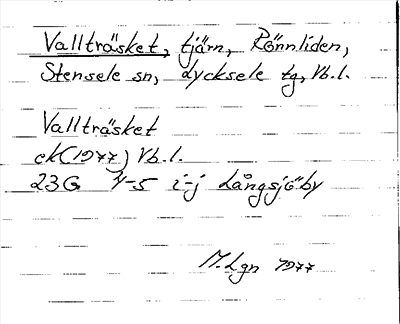 Vallträsket, tjärn, Rönnliden,
Stensele sn, Lycksele tg, Vb.l.
Vallträsket
ek(1977) Vb.l.
23G 4-5 i-j Långsjöby
M.Lgn 1977